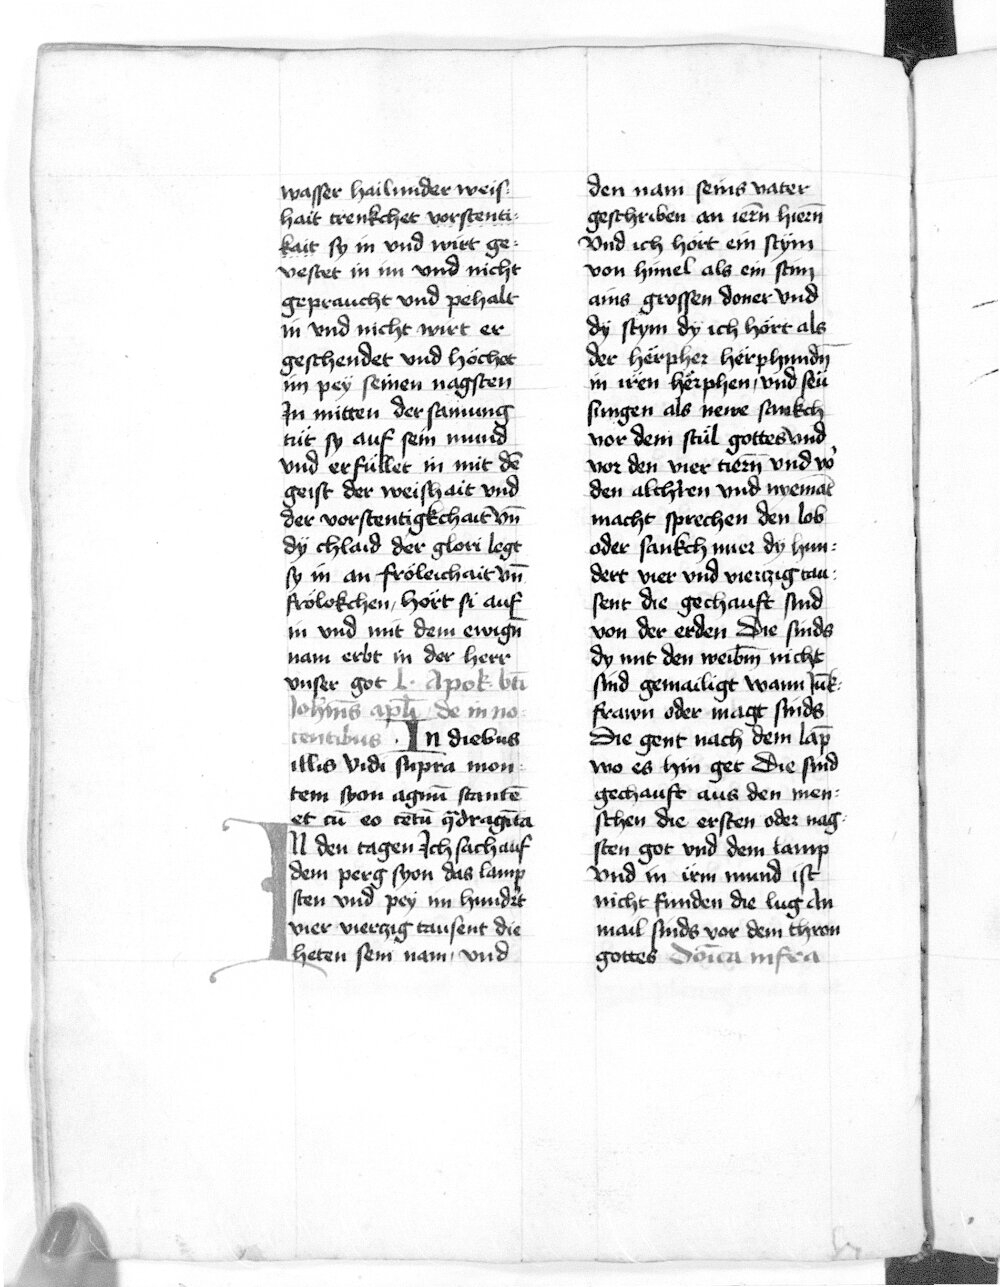 wasser hailunder weis:
hait trenkchet vorstenti:
kait sy in vnd wirt ge:
vestet in im vnd nicht
gepraucht vnd pehalt
in vnd nicht wirt er
geschendet vnd höchet
im pey seinen nagsten
In mitten der samung
tüt sy auf sein mund
vnd erfüllet in mit dē
geist der weishait vnd
der vorstentigkchait vn̄
dÿ chlaid der glori legt
sy in an fröleichait vn̄
frölokchen, hört si auf
in vnd mit dem ewign̄
nam erbt in der herr
vnser got L. Apok. bt̄i
Ioh̄nis apl̄i de in no:
centibus . In diebus
illis vidi supra mon:
tem syon agnū stantē
et cū eo cētū q̄dragīta
IN den tagen Ich sach auf
dem perg syon das lamp
sten vnd pey im hundr̄t
vier vierzig tausent die
heten sein nam, vnd
den nam seins vater
geschriben an iern̄ hiern̄
Vnd ich hört ein stÿm
von himel als ein stim
ains grossen doner vnd
dÿ stÿm dÿ ich hört als
der hërpher hërphundn̄
in iren hërphen, vnd seü
sungen als newe sankch
vor dem stül gottes vnd
vor den vier tiern̄ vnd vo᷑
den altchten vnd nyemāt
macht sprechen den lob
oder sankch nuer dÿ hun:
dert vier vnd vierzig tau:
sent die gechauft sind
von der erden Die sinds
dy mit den weibm̄ nicht
sind gemailigt wann Iūk:
frawn oder magt sinds
Die gent nach dem lāp
wo es hin get Die sind
gechauft aus den men:
schen die ersten oder nag:
sten got vnd dem lamp
vnd in irm mund ist
nicht funden die lug An
mail sinds vor dem thron
gottes Dōica infra